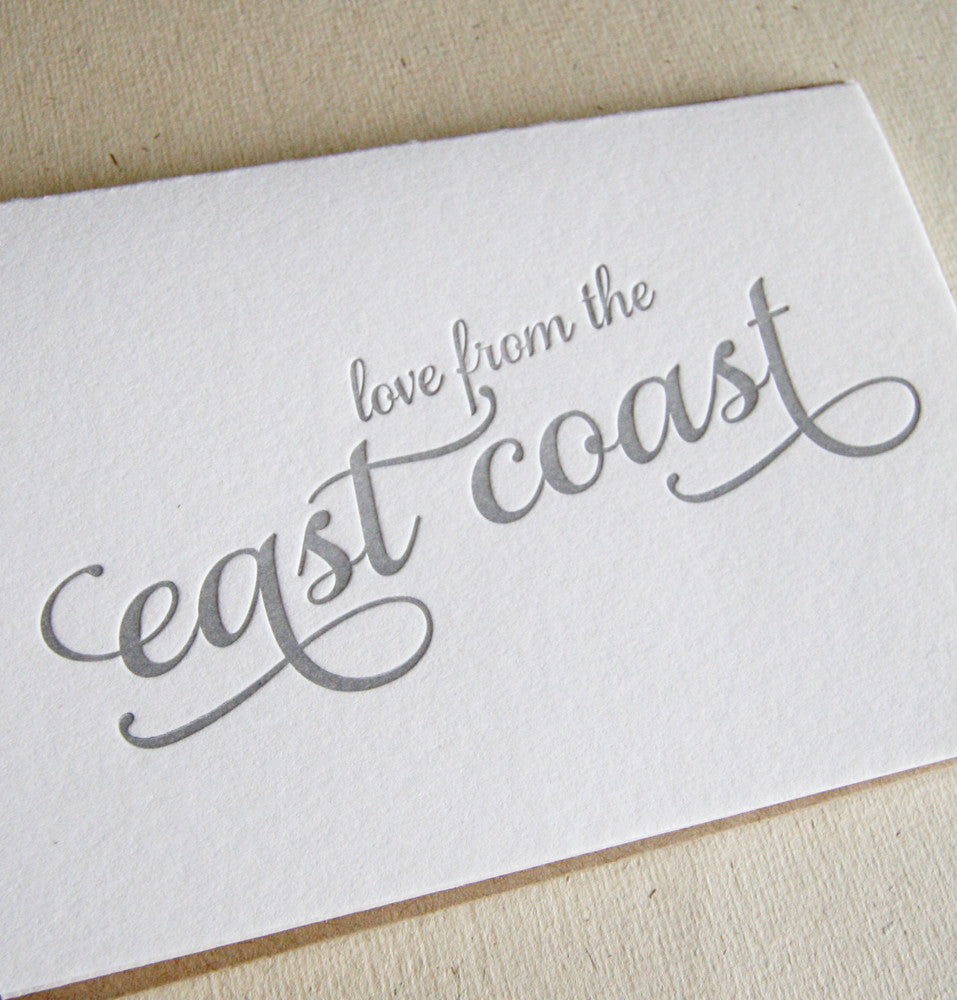 love from the
east coast